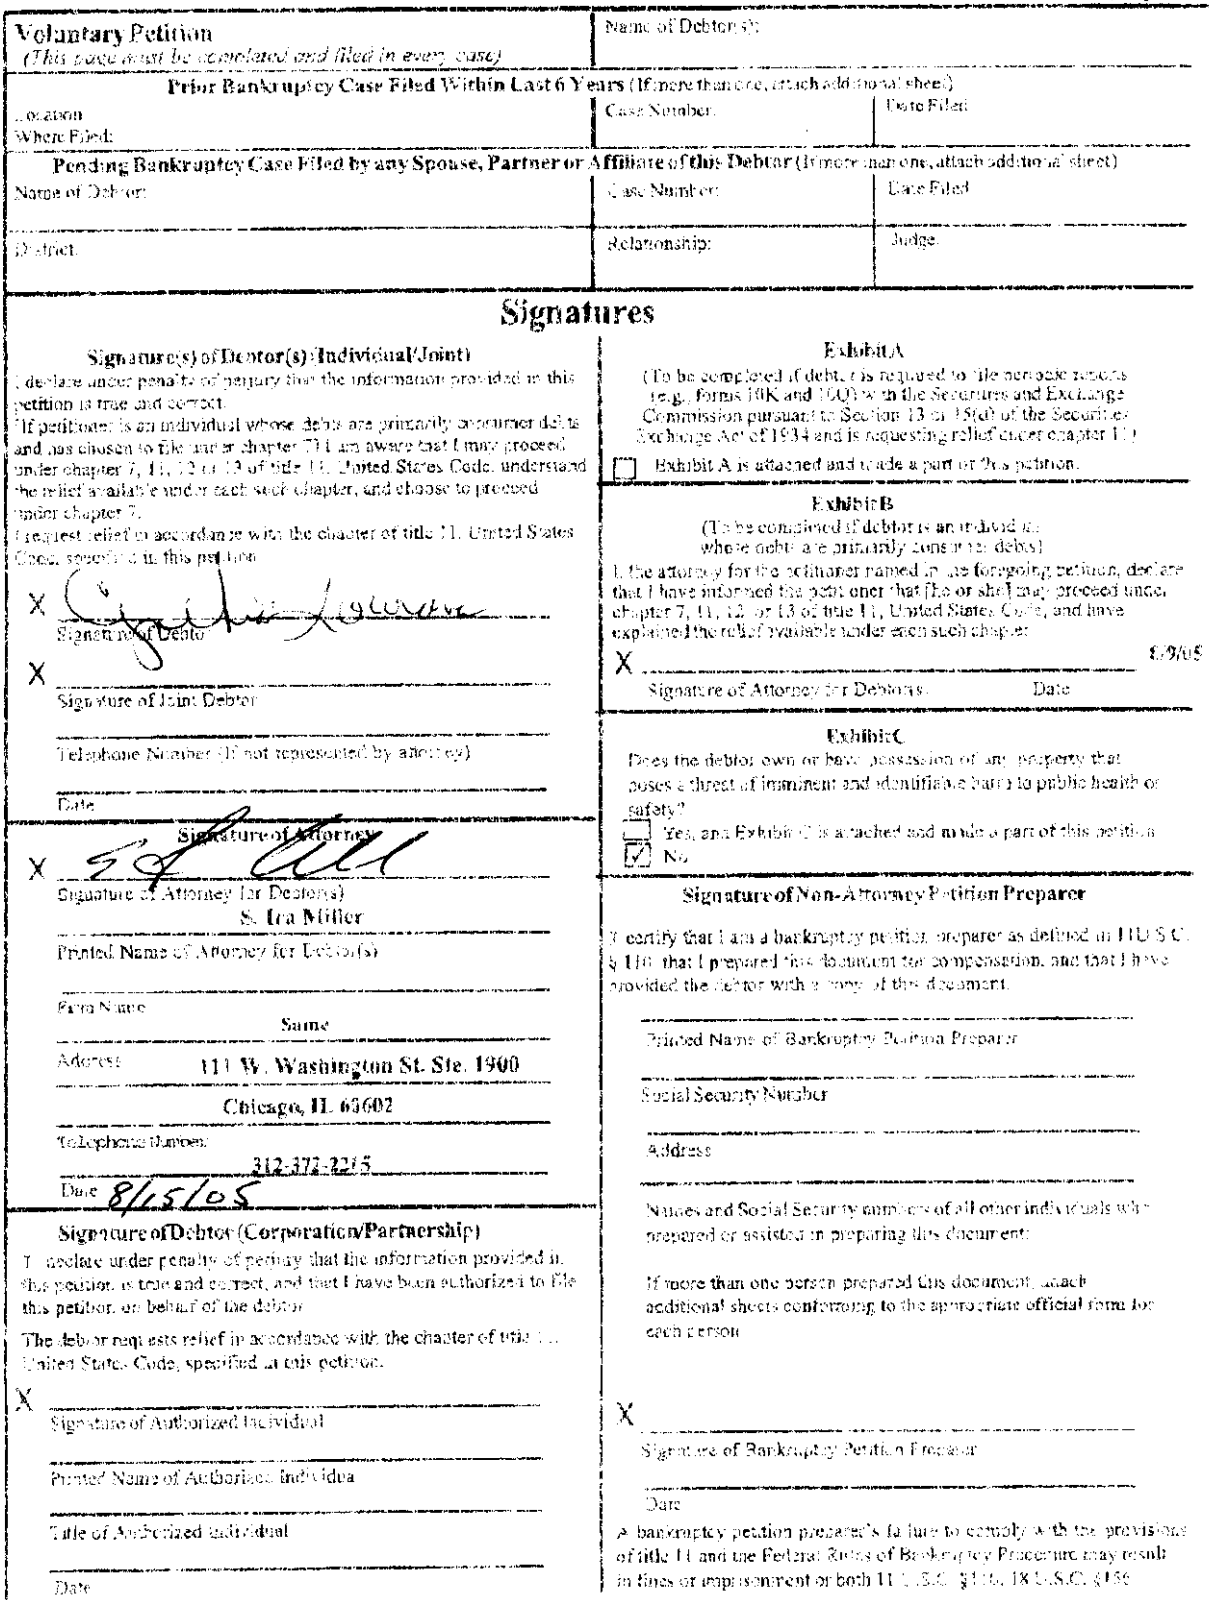 Voluntary Petition
(This page must be completed and filed in every case)
Name of Debtor(s):
Prior Bankruptcy Case Filed Within Last 6 Years (If more than one, attach additional sheet)
Location
Where Filed:
Case Number:
Date Filed:
Pending Bankruptcy Case Filed by any Spouse, Partner or Affiliate of this Debtor (If more than one, attach additional sheet)
Name of Debtor:
Case Number:
Date Filed:
District:
Relationship:
Judge:
Signatures
Signature(s) of Debtor(s) (Individual/Joint)
I declare under penalty of perjury that the information provided in this
petition is true and correct.
[If petitioner is an individual whose debts are primarily consumer debts
and has chosen to file under chapter 7] I am aware that I may proceed
under chapter 7, 11, 12 or 13 of title 11, United States Code, understand
the relief available under each such chapter, and choose to proceed
under chapter 7.
I request relief in accordance with the chapter of title 11, United States
Code, specified in this petition.
X
Signature of Debtor
X
Signature of Joint Debtor
Telephone Number (If not represented by attorney)
Date
Signature of Attorney
X
Signature of Attorney for Debtor(s)
S. Ira Miller
Printed Name of Attorney for Debtor(s)
Firm Name
Same
Address
111 W. Washington St. Ste. 1900
Chicago, IL 60602
Telephone Number
312-372-2215
Date 8/15/05
Signature of Debtor (Corporation/Partnership)
I declare under penalty of perjury that the information provided in
this petition is true and correct, and that I have been authorized to file
this petition on behalf of the debtor.
The debtor requests relief in accordance with the chapter of title 11,
United States Code, specified in this petition.
X
Signature of Authorized Individual
Printed Name of Authorized Individual
Title of Authorized Individual
Date
Exhibit A
(To be completed if debtor is required to file periodic reports
(e.g., forms 10K and 10Q) with the Securities and Exchange
Commission pursuant to Section 13 or 15(d) of the Securities
Exchange Act of 1934 and is requesting relief under chapter 11)
Exhibit A is attached and made a part of this petition.
Exhibit B
(To be completed if debtor is an individual
whose debts are primarily consumer debts)
I, the attorney for the petitioner named in the foregoing petition, declare
that I have informed the petitioner that [he or she] may proceed under
chapter 7, 11, 12, or 13 of title 11, United States Code, and have
explained the relief available under each such chapter.
X 8/9/05
Signature of Attorney for Debtor(s) Date
Exhibit C
Does the debtor own or have possession of any property that
poses a threat of imminent and identifiable harm to public health or
safety?
Yes, and Exhibit C is attached and made a part of this petition.
No
Signature of Non-Attorney Petition Preparer
I certify that I am a bankruptcy petition preparer as defined in 11 U.S.C.
§ 110, that I prepared this document for compensation, and that I have
provided the debtor with a copy of this document.
Printed Name of Bankruptcy Petition Preparer
Social Security Number
Address
Names and Social Security numbers of all other individuals who
prepared or assisted in preparing this document:
If more than one person prepared this document, attach
additional sheets conforming to the appropriate official form for
each person.
X
Signature of Bankruptcy Petition Preparer
Date
A bankruptcy petition preparer's failure to comply with the provisions
of title 11 and the Federal Rules of Bankruptcy Procedure may result
in fines or imprisonment or both 11 U.S.C. §110; 18 U.S.C. §156.